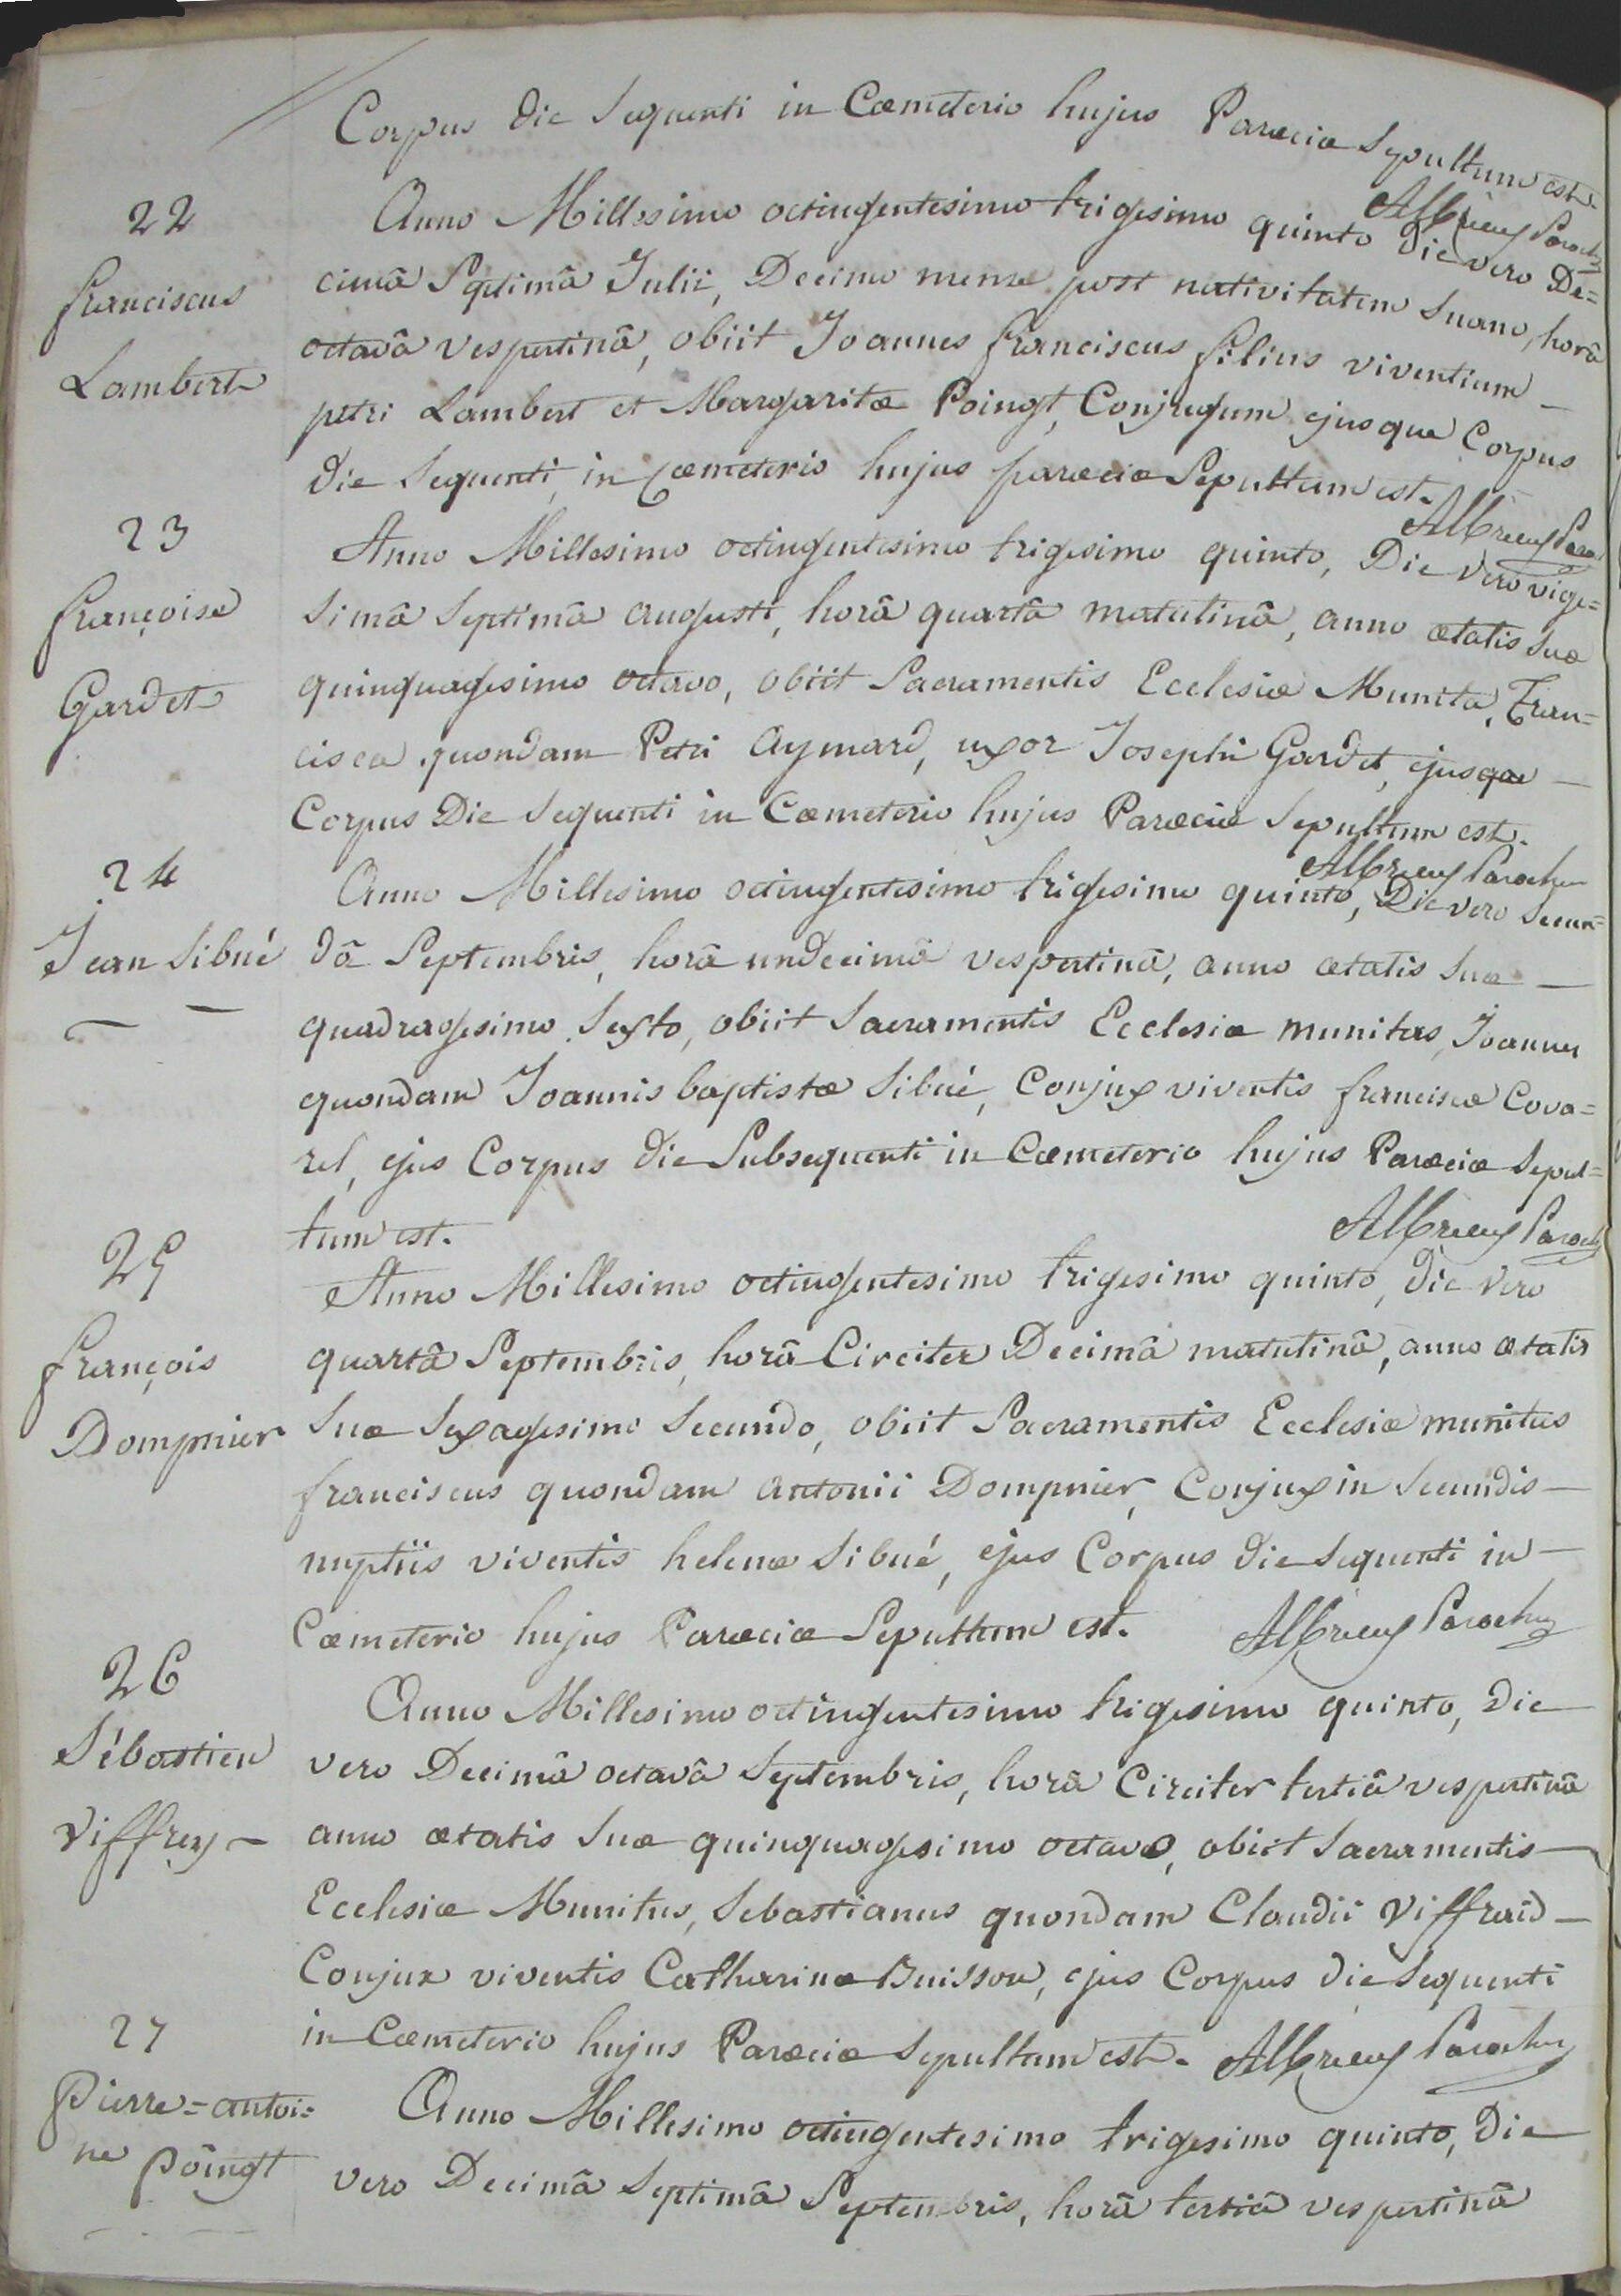 Corpus die sequenti in Cœmeterio hujus Parœciæ Sepultum est.
Albrieux Paroch
22
franciscus
Lambert
Anno Millesimo octingentesimo trigesimo quinto die vero De=
cimâ Septimâ Julii, Decimo mense post nativitatem suam, horâ
octavâ vespertinâ, obiit Joannes franciscus filius viventium
petri Lambert et Margaritæ Poingt, Conjugum ejusque Corpus
die sequenti, in Cœmeterio hujus parœciæ Sepultum est.
Albrieux Paro
23
françoise
Gardet
Anno Millesimo octingentesimo trigesimo quinto, Die vero vige=
simâ Septimâ augusti, horâ quartâ matutinâ, anno ætatis suæ
quinquagesimo octavo, obiit Sacramentis Ecclesiæ Munita, Fran=
cisca quondam Petri Aymard, uxor Josephi Gardet, ejusque
Corpus Die sequenti in Cœmeterio hujus Parœciæ Sepultum est.
Albrieux Parochus
24
Jean Sibué
Anno Millesimo octingentesimo trigesimo quinto, Die vero secun=
dâ Septembris, horâ undecimâ vespertinâ, anno ætatis suæ
quadragesimo Sexto, obiit Sacramentis Ecclesiæ munitus, Joannes
quondam Joannis baptistæ Sibué, Conjux viventis franciscæ Cova=
rel, ejus Corpus die Subsequenti in Cœmeterio hujus Parœciæ Sepul=
tum est.
Albrieux Paroch
25
françois
Dompnier
Anno Millesimo octingentesimo trigesimo quinto, die vero
quartâ Septembris, horâ Circiter Decimâ matutinâ, anno ætatis
suæ Sexagesimo Secundo, obiit Sacramentis Ecclesiæ munitus
franciscus quondam antonii Dompnier, Conjux in secundis
nuptiis viventis helenæ Sibué, ejus Corpus die sequenti in
Cœmeterio hujus Parœciæ Sepultum est. Albrieux Parochus
26
Sébastien
Viffrey
Anno Millesimo octingentesimo trigesimo quinto, Die
vero Decimâ octavâ Septembris, horâ Circiter tertiâ vespertinâ
anno ætatis suæ quinquagesimo octavo, obiit Sacramentis
Ecclesiæ Munitus, Sebastianus quondam Claudii Viffraid
Conjux viventis Catharinæ Buisson, ejus Corpus die sequenti
in Cœmeterio hujus Parœciæ Sepultum est. Albrieux Parochus
27
Pierre=antoi=
ne Poingt
Anno Millesimo octingentesimo trigesimo quinto, Die
vero Decimâ Septimâ Septembris, horâ tertiâ vespertinâ